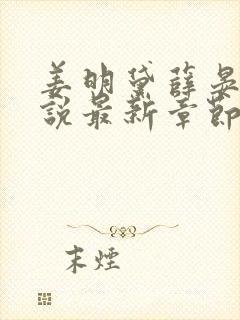 姜明黛薛
說最新章節
末煙